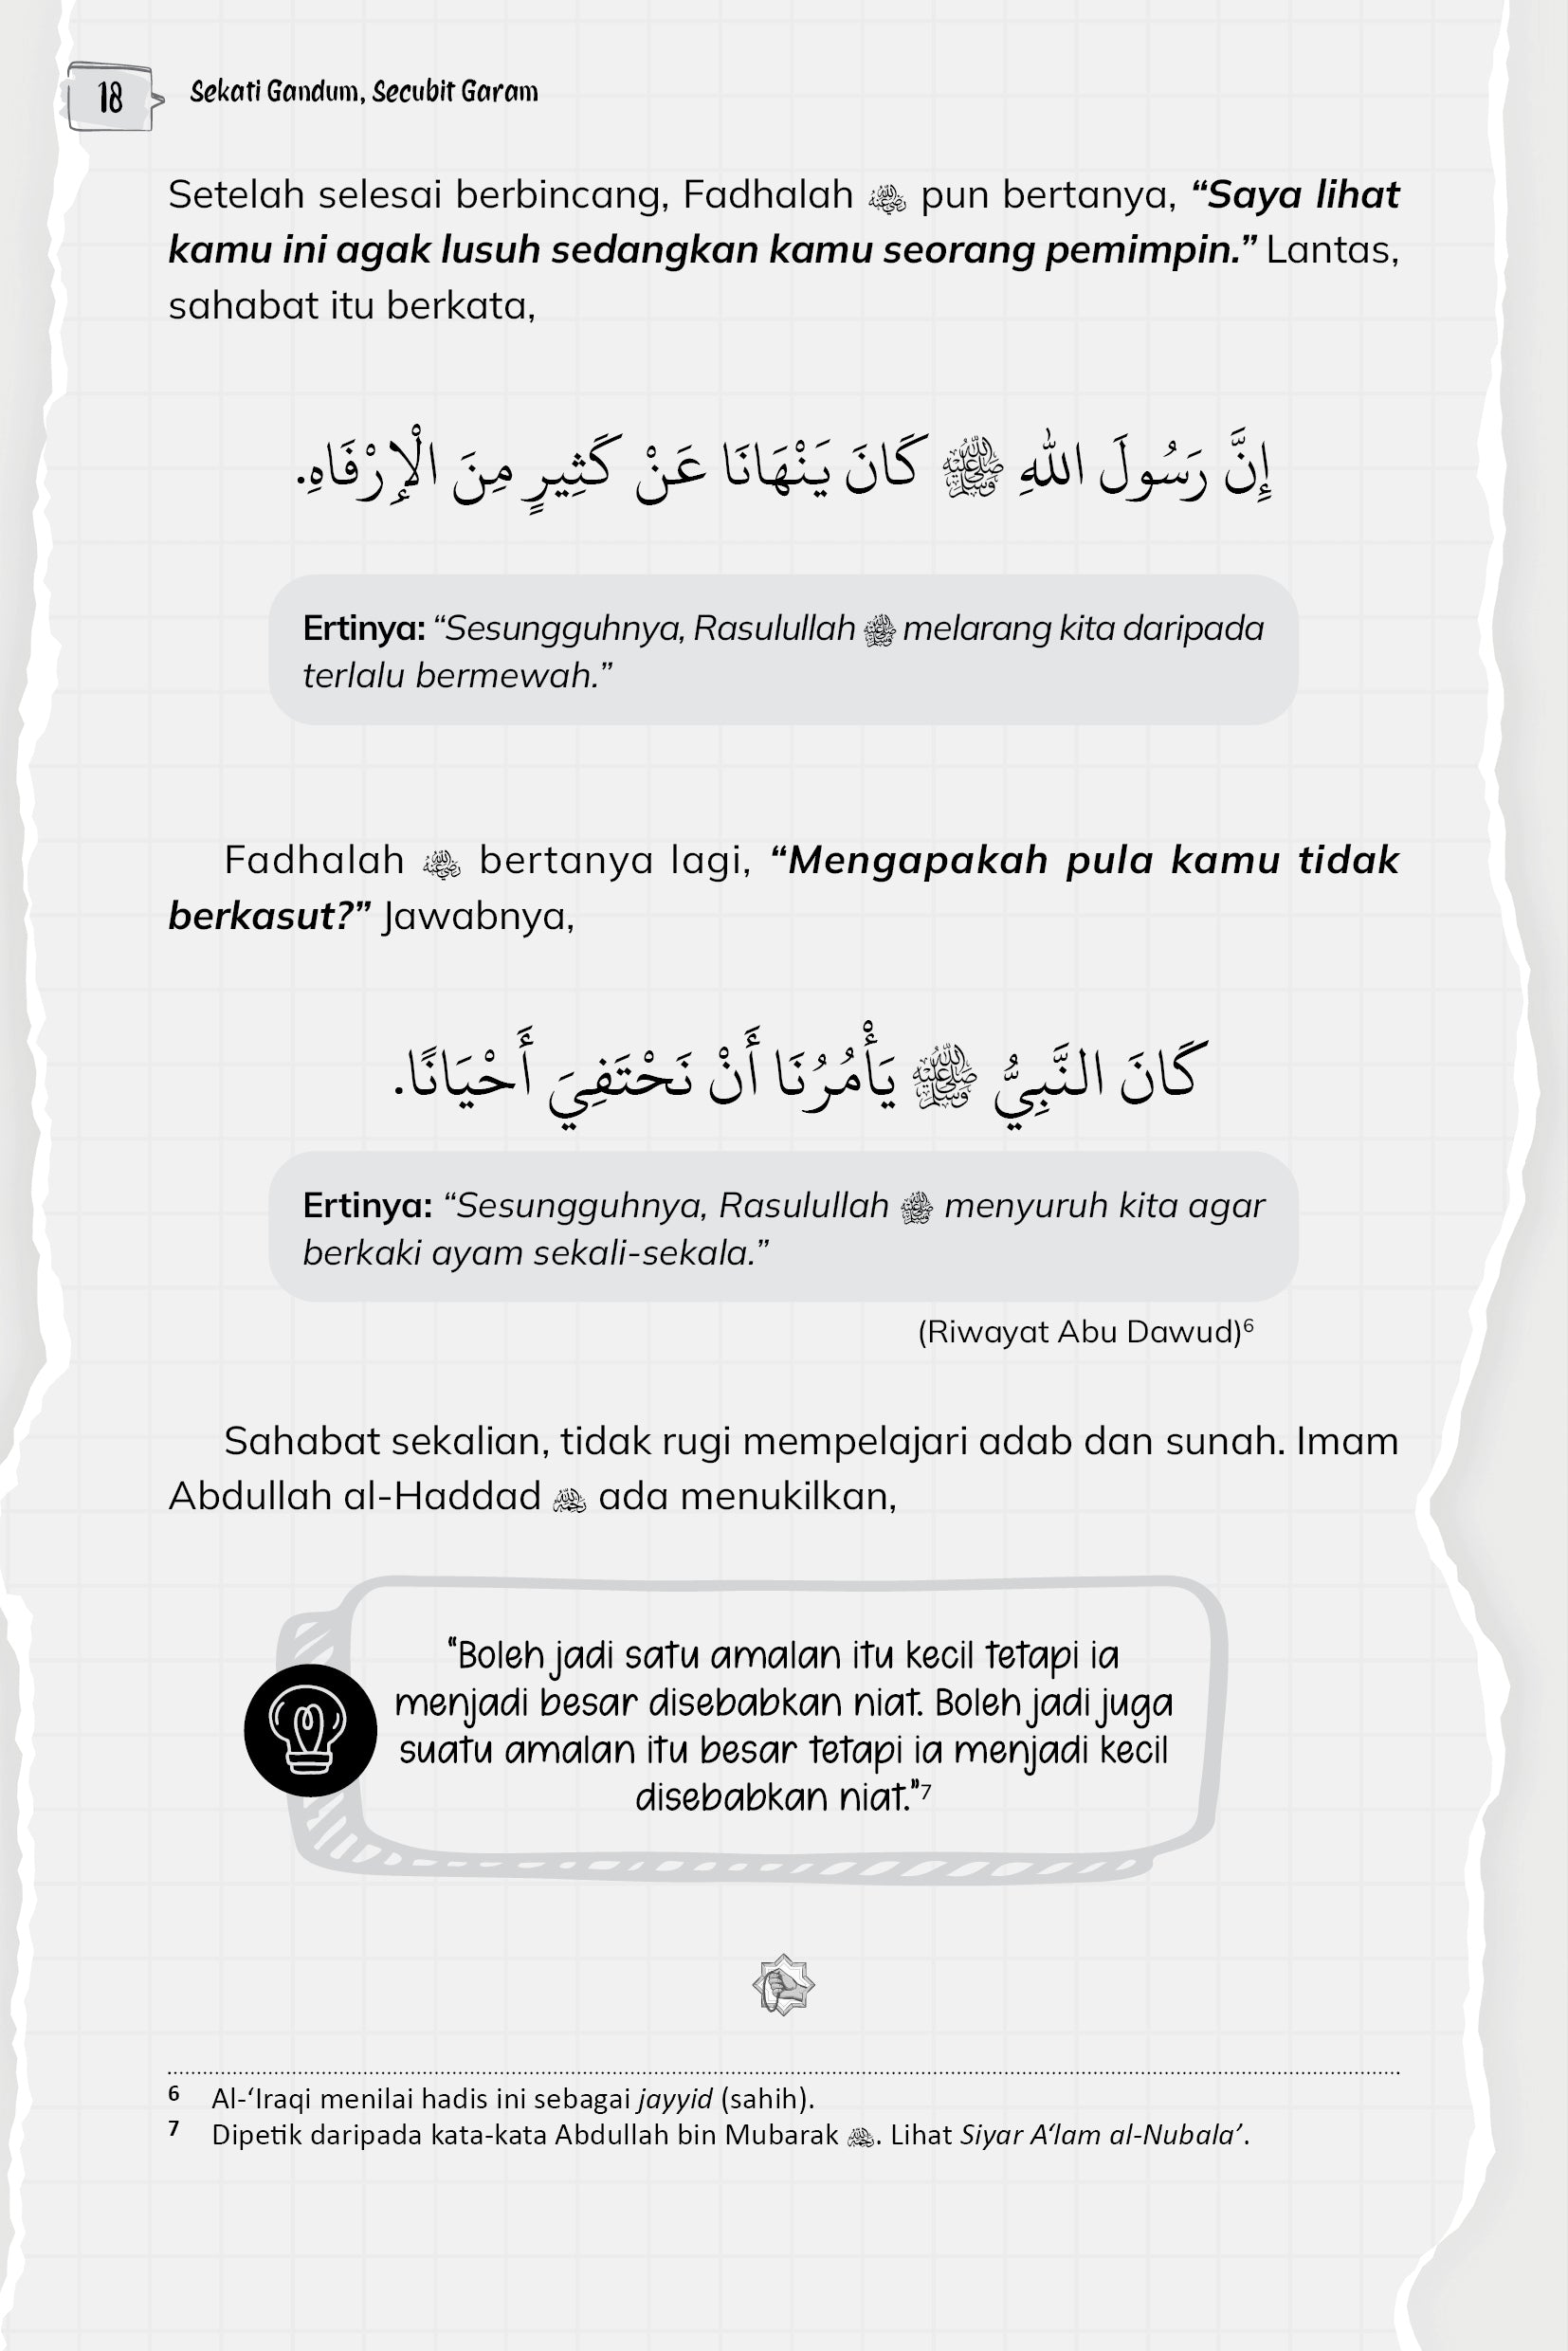 18
Sekati Gandum, Secubit Garam
Setelah selesai berbincang, Fadhalah رضي الله عنه pun bertanya, “Saya lihat
kamu ini agak lusuh sedangkan kamu seorang pemimpin.” Lantas,
sahabat itu berkata,
إِنَّ رَسُولَ اللهِ ﷺ كَانَ يَنْهَانَا عَنْ كَثِيرٍ مِنَ الْإِرْفَاهِ.
Ertinya: “Sesungguhnya, Rasulullah ﷺ melarang kita daripada
terlalu bermewah.”
Fadhalah رضي الله عنه bertanya lagi, “Mengapakah pula kamu tidak
berkasut?” Jawabnya,
كَانَ النَّبِيُّ ﷺ يَأْمُرُنَا أَنْ نَحْتَفِيَ أَحْيَانًا.
Ertinya: “Sesungguhnya, Rasulullah ﷺ menyuruh kita agar
berkaki ayam sekali-sekala.”
(Riwayat Abu Dawud)⁶
Sahabat sekalian, tidak rugi mempelajari adab dan sunah. Imam
Abdullah al-Haddad رحمه الله ada menukilkan,
“Boleh jadi satu amalan itu kecil tetapi ia
menjadi besar disebabkan niat. Boleh jadi juga
suatu amalan itu besar tetapi ia menjadi kecil
disebabkan niat.”⁷
6 Al-‘Iraqi menilai hadis ini sebagai jayyid (sahih).
7 Dipetik daripada kata-kata Abdullah bin Mubarak رحمه الله. Lihat Siyar A‘lam al-Nubala’.